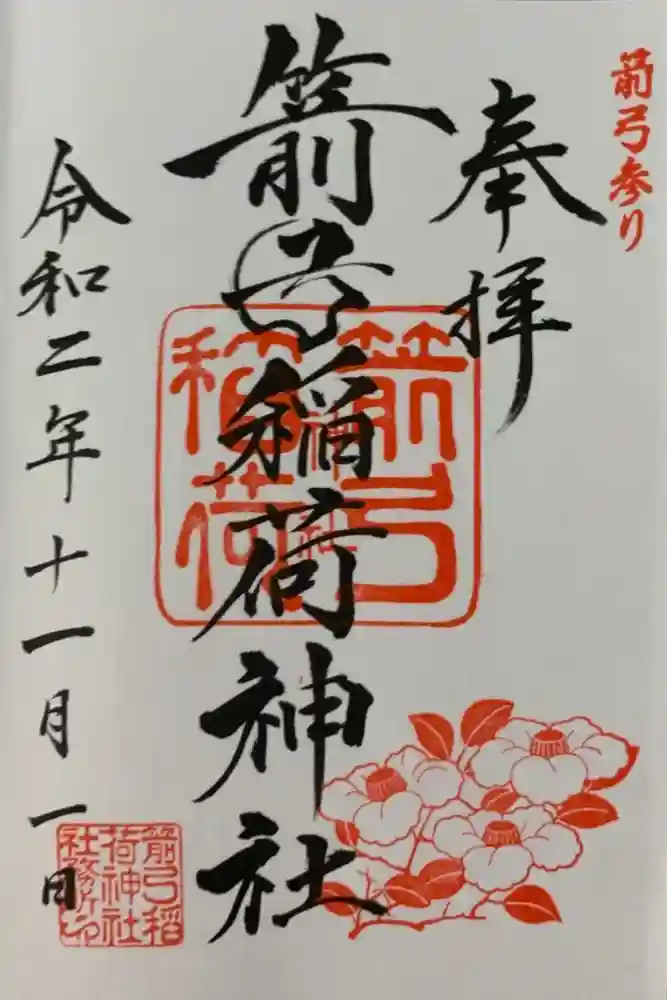 箭弓参り
奉拝
箭弓稲荷神社
箭弓
稲荷
神社
令和二年十一月一日
箭弓稲
荷神社
社務所印